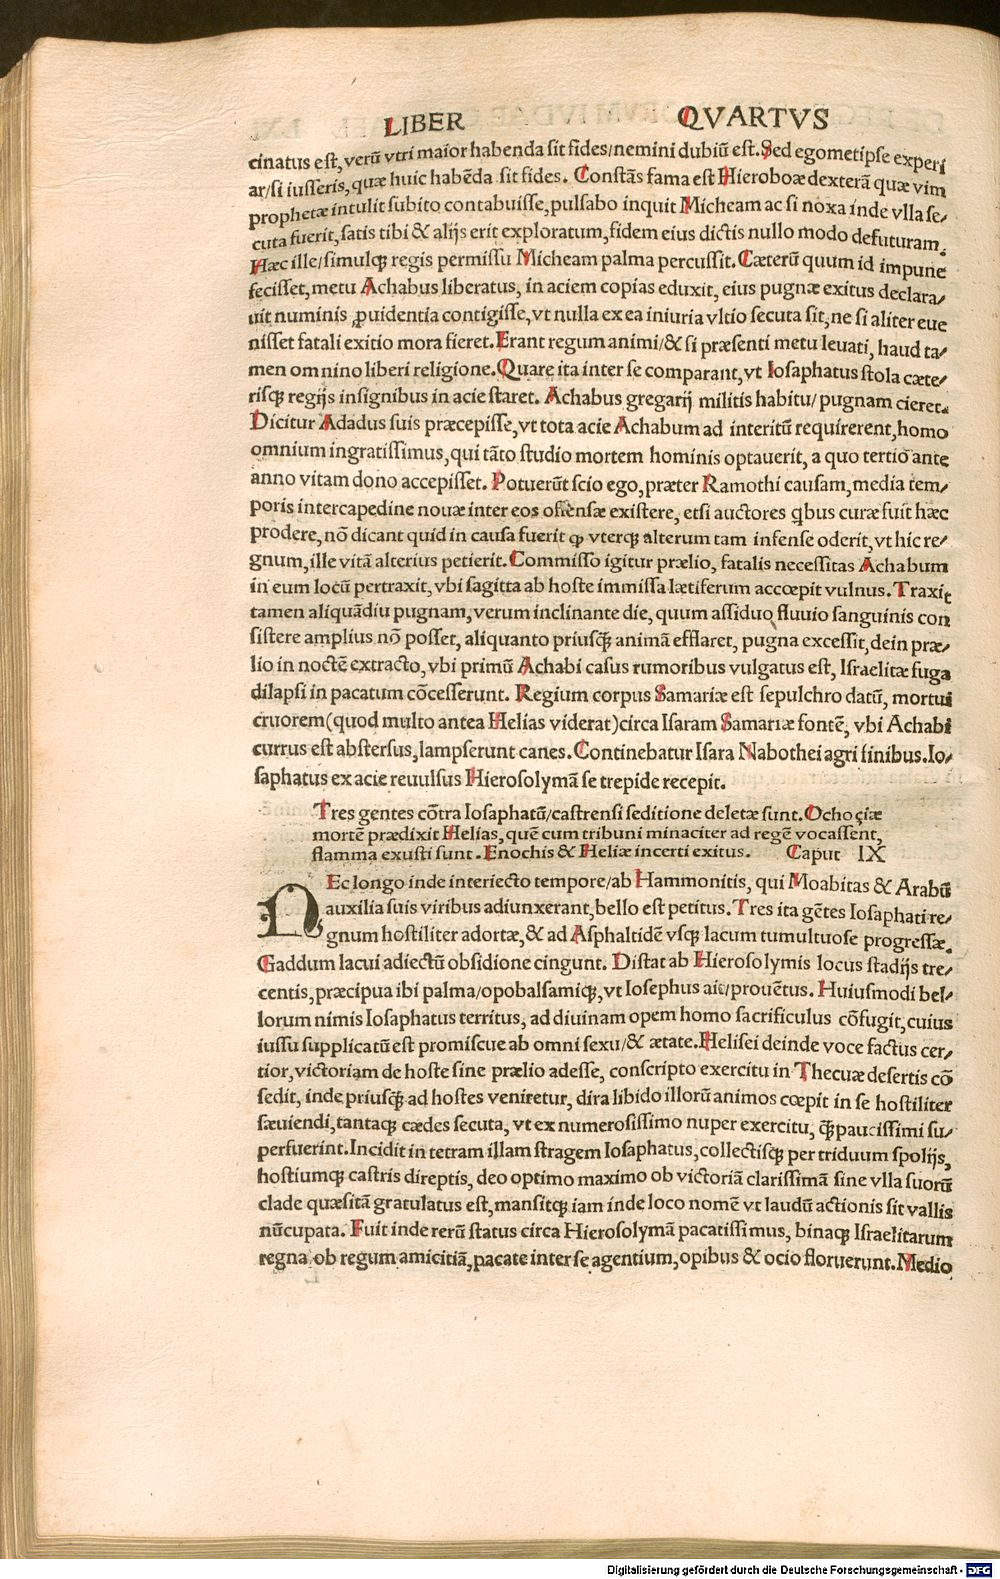 LIBER QVARTVS
cinatus est, verũ vtri maior habenda sit fides/nemini dubiũ est. Sed egometipse experi
ar/si iusseris, quæ huic habẽda sit fides. Constãs fama est Hieroboæ dexterã quæ vim
prophetæ intulit subito contabuisse, pulsabo inquit Micheam ac si noxa inde vlla se/
cuta fuerit, satis tibi & alijs erit exploratum, fidem eius dictis nullo modo defuturam.
Hæc ille/simulqꝫ regis permissu Micheam palma percussit. Cæterũ quum id impune
fecisset, metu Achabus liberatus, in aciem copias eduxit, eius pugnæ exitus declara/
uit numinis ꝓuidentia contigisse, vt nulla ex ea iniuria vltio secuta sit, ne si aliter eue
nisset fatali exitio mora fieret. Erant regum animi/& si præsenti metu leuati, haud ta/
men omnino liberi religione. Quare ita inter se comparant, vt Iosaphatus stola cæte/
risqꝫ regijs insignibus in acie staret. Achabus gregarij militis habitu/ pugnam cieret.
Dicitur Adadus suis præcepisse, vt tota acie Achabum ad interitũ requirerent, homo
omnium ingratissimus, qui tãto studio mortem hominis optauerit, a quo tertio ante
anno vitam dono accepisset. Potuerũt scio ego, præter Ramothi causam, media tem/
poris intercapedine nouæ inter eos offensæ existere, etsi auctores qbus curæ fuit hæc
prodere, nõ dicant quid in causa fuerit ꝙ vterqꝫ alterum tam infense oderit, vt hic re/
gnum, ille vitã alterius petierit. Commisso igitur prælio, fatalis necessitas Achabum
in eum locũ pertraxit, vbi sagitta ab hoste immissa lætiferum accœpit vulnus. Traxit
tamen aliquãdiu pugnam, verum inclinante die, quum assiduo fluuio sanguinis con
sistere amplius nõ posset, aliquanto priusqꝫ̃ animã efflaret, pugna excessit, dein præ/
lio in noctẽ extracto, vbi primũ Achabi casus rumoribus vulgatus est, Israelitæ fuga
dilapsi in pacatum cõcesserunt. Regium corpus Samariæ est sepulchro datũ, mortui
cruorem(quod multo antea Helias viderat)circa Isaram Samariæ fontẽ, vbi Achabi
currus est abstersus, lampserunt canes. Continebatur Isara Nabothei agri finibus. Io/
saphatus ex acie reuulsus Hierosolymã se trepide recepit.
Tres gentes cõtra Iosaphatũ/castrensi seditione deletæ sunt. Ochoçiæ
mortẽ prædixit Helias, quẽ cum tribuni minaciter ad regẽ vocassent,
flamma exusti sunt. Enochis & Heliæ incerti exitus. Caput IX
NEc longo inde interiecto tempore/ab Hammonitis, qui Moabitas & Arabũ
auxilia suis viribus adiunxerant, bello est petitus. Tres ita gẽtes Iosaphati re/
gnum hostiliter adortæ, & ad Asphaltidẽ vsqꝫ lacum tumultuose progressæ.
Gaddum lacui adiectũ obsidione cingunt. Distat ab Hierosolymis locus stadijs tre/
centis, præcipua ibi palma/opobalsamiqꝫ, vt Iosephus ait/prouẽtus. Huiusmodi bel/
lorum nimis Iosaphatus territus, ad diuinam opem homo sacrificulus cõfugit, cuius
iussu supplicatũ est promiscue ab omni sexu/& ætate. Helisei deinde voce factus cer/
tior, victoriam de hoste sine prælio adesse, conscripto exercitu in Thecuæ desertis cõ
sedit, inde priusqꝫ̃ ad hostes veniretur, dira libido illorũ animos cœpit in se hostiliter
sæuiendi, tantaqꝫ cædes secuta, vt ex numerosissimo nuper exercitu, qꝫ̃ paucissimi su/
perfuerint. Incidit in tetram illam stragem Iosaphatus, collectisqꝫ per triduum spolijs,
hostiumqꝫ castris direptis, deo optimo maximo ob victoriã clarissimã sine vlla suorũ
clade quæsitã gratulatus est, mansitqꝫ iam inde loco nomẽ vt laudũ actionis sit vallis
nũcupata. Fuit inde rerũ status circa Hierosolymã pacatissimus, binaqꝫ Israelitarum
regna ob regum amicitiã, pacate inter se agentium, opibus & ocio floruerunt. Medio
Digitalisierung gefördert durch die Deutsche Forschungsgemeinschaft - DFG